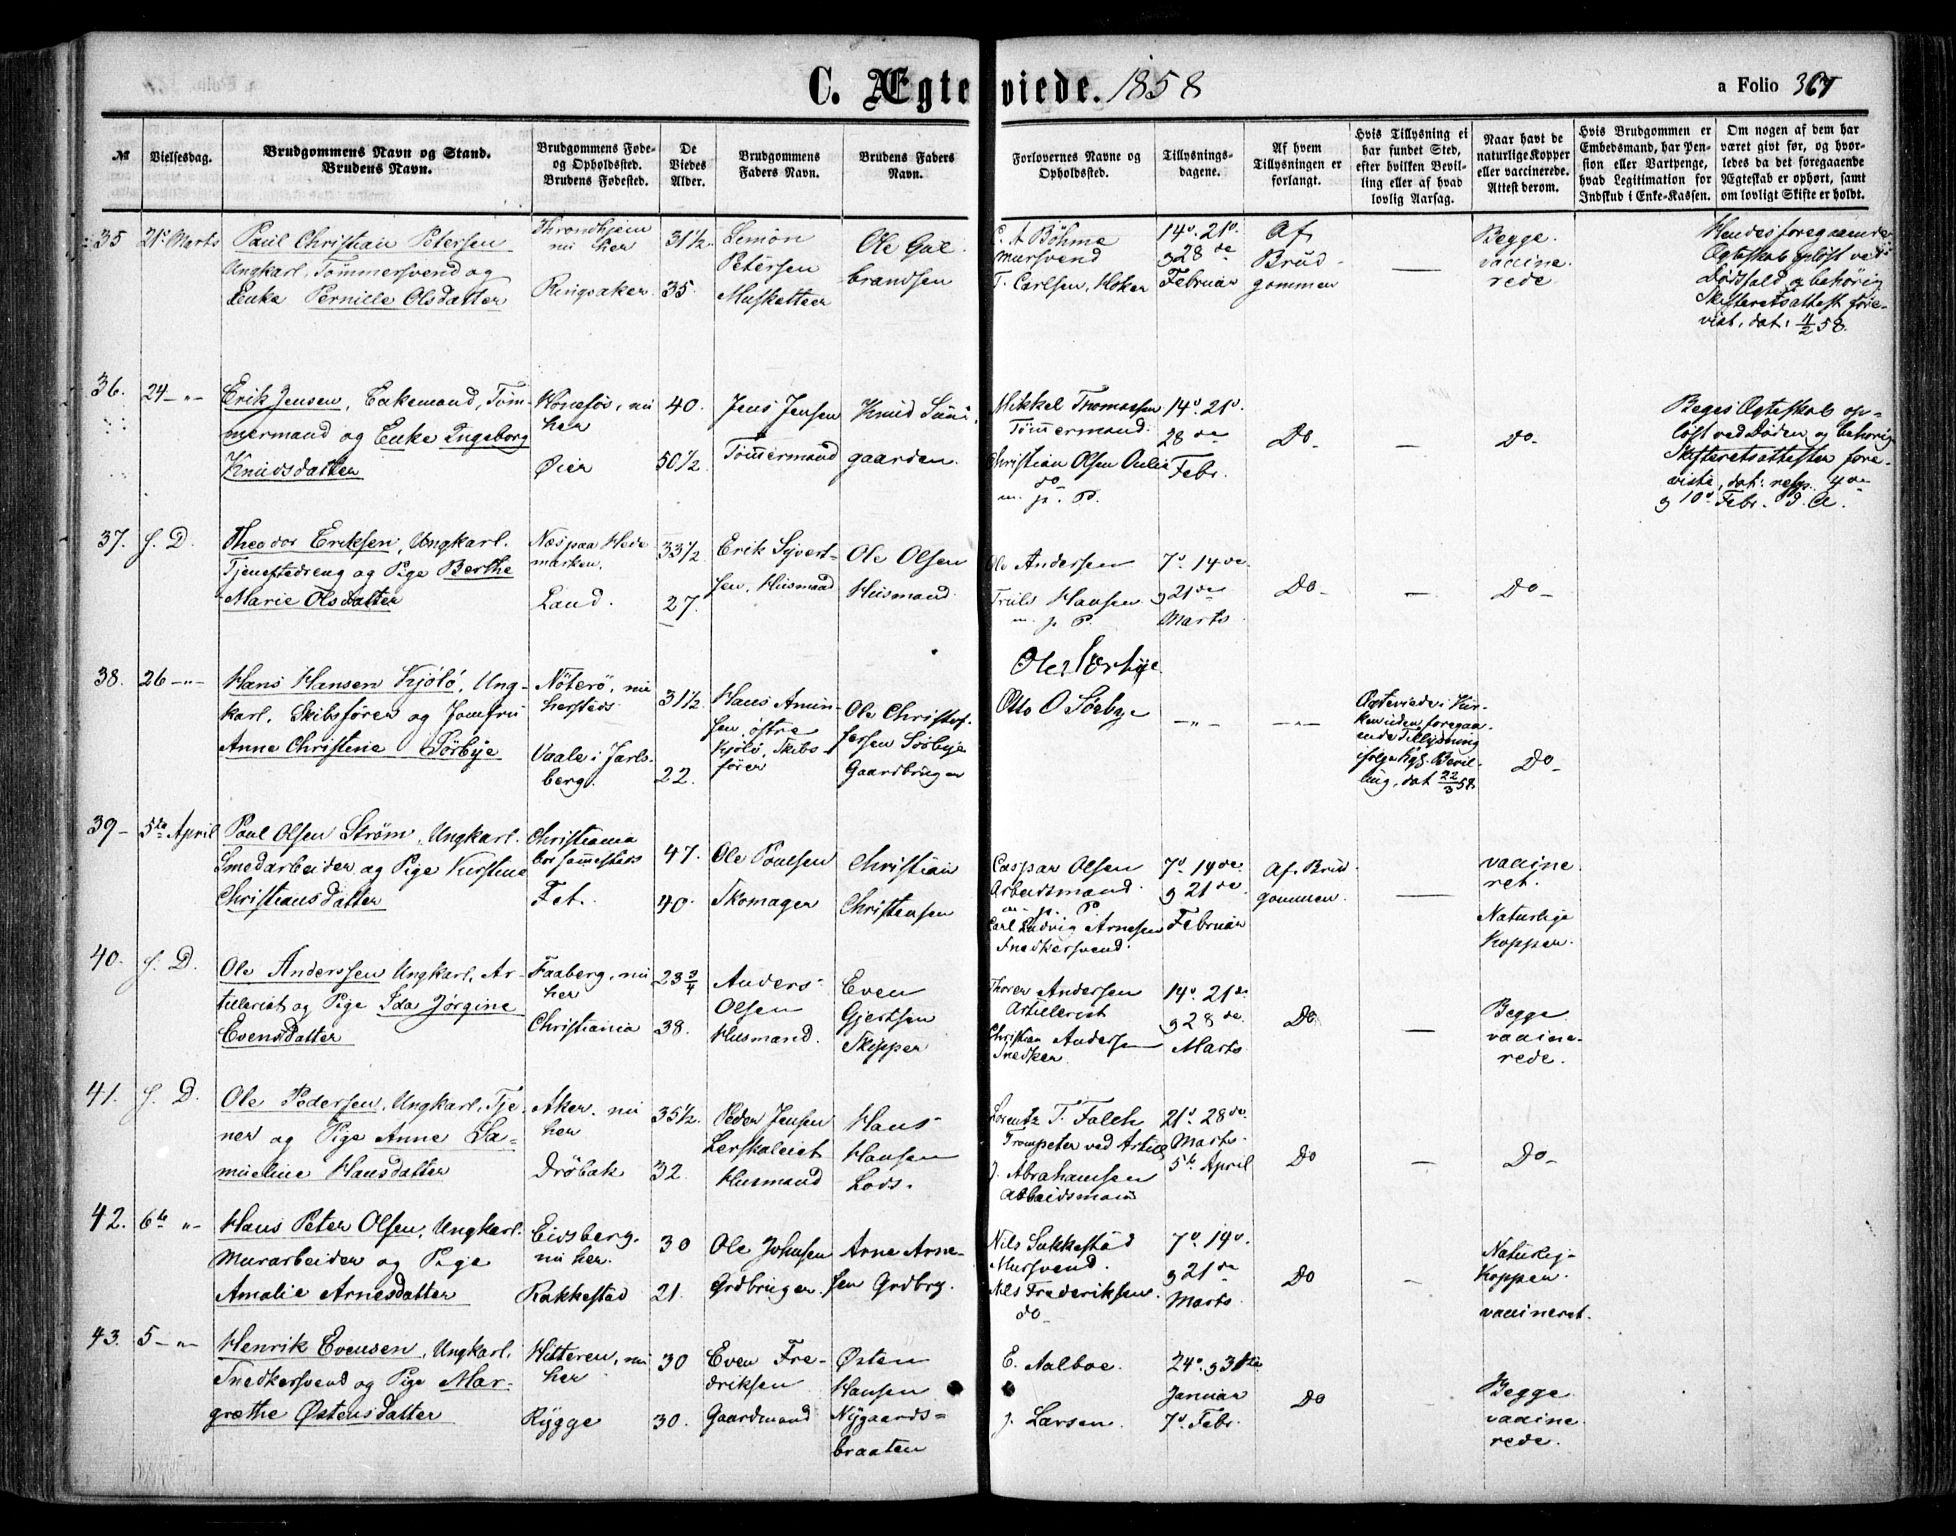 C. Ægteviede. 1858
a Folio 367
№
Vielsesdag.
Brudgommens Navn og Stand.
Brudens Navn.
Brudgommens Føde-
og Opholdssted.
Brudens Fødested.
De
Viedes
Alder.
Brudgommens
Faders Navn.
Brudens Faders
Navn.
Forlovernes Navne og
Opholdssted.
Tillysnings-
dagene.
Af hvem
Tillysningen er
forlangt.
Hvis Tillysning ei
har fundet Sted,
efter hvilken Bevil-
ling eller af hvad
lovlig Aarsag.
Naar havt de
naturlige Kopper
eller vaccinerede.
Attest derom.
Hvis Brudgommen er
Embedsmand, har Pen-
sion eller Vartpenge,
hvad Legitimation for
Indskud i Enke-Kassen.
Om nogen af dem har
været givt før, og hvor-
ledes da det foregaaende
Ægteskab er ophørt, samt
om lovligt Skifte er holdt.
35
21de Marts
Paul Christian Petersen
Ungkarl, Tømmersvend og
Enke Pernille Olsdatter
Throndhjem
nu her
Ringsaker
31½
35.
Simon
Petersen
Musketteer
Ole Gul
brandsen
C. A Bøhme
Mursvend
T. Carlsen, Høker
14de 21de
og 28de
Februar
Af
Brud-
gommen
—
Begge
vaccine
rede
Hendes foregaaende
Ægteskab opløst ved
Dødsfald og behørig
Skifteretsattest fore-
vist, dat: 11/2 58.
36.
24 — " —
Erik Jensen, Enkemand, Tøm-
mermand og Enke Ingeborg
Knudsdatter
Hønefos, nu
her
Øier
40.
50½
Jens Jensen
Tømmermand
Knud
gaarden.
Mikkel Thomassen
Tømmermand.
Christian Olsen
do
m. p. P.
14de 21de
28de
Febr.
Do
—
Do
Beges Ægteskab op-
løst ved Døden og behørig
Skifteretsattester fore-
viste, dat: resp. 4de
og 10de Febr. d. A.
37.
s. D.
Theodor Eriksen, Ungkarl.
Tjenestedreng og Pige Berthe
Marie Olsdatter
Næs paa Hede
marken.
Land.
33½
27.
Erik Syvert-
sen, Husmand
Ole Olsen
Husmand
Ole Andersen
Truls Hansen
m. p. P.
7de 14de
og 21de
Marts
Do
—
Do
38.
26 — " —
Hans Hansen Kjølø, Ung-
karl, Skibsfører og Jomfru
Anne Christine Sørbye
Nøterø, nu
hersteds
Vaale i Jarls-
berg.
31½
22.
Hans Amun-
sen, østre
Kjølø, Skibs-
fører
Ole Christof-
fersen Sørbye
Gaardbruger
Ole Sørbye
Otto O Sørbye
— " —
— " —
Ægteviede i Kir-
ken uden foregaa-
ende Tillysning
ifølge Kgl. Bevil-
ling, dat 22/3 58
Do
39 —
5te April
Poul Olsen Strøm, Ungkarl.
Smedarbeider og Pige Kirstine
Christiansdatter
Christiania
bor sammesteds
Fet.
47.
40.
Ole Poulsen
Skomager
Christian
Christensen
Caspar Olsen
Arbeidsmand
m. p. P
Carl Ludvig Arnesen
Snedkersvend.
7de 14de
og 21de
Februar
Af Brud-
gommen
—
vaccine
ret.
Naturlige
Kopper.
40.
s. D.
Ole Anderssen Ungkarl, Ar-
tillerist og Pige Ida Jørgine
Evensdatter
Faaberg, nu
her
Christiania
23¾
38.
Anders
Olsen
Husmand.
Even
Gjertsen
Skipper
Thorer Andersen
Artillerist
Christian Andersen
Snedker.
14de 21de
og 28de
Marts
Do
—
Begge
vaccine-
rede.
41.
s. D.
Ole Pedersen, Ungkarl, Tje-
ner og Pige Anne Sa-
mueline Hansdatter
Aker, nu
her
Drøbak
35½.
32.
Peder Jensen
Lerskaleiet
Husmand
Hans
Hansen
Lods.
Lorentz T. Falch
Trompeter ved Artill
J. Abrahamsen
Arbeidsmand
21de 28de
Marts.
5te April
Do
—
Do
42.
6te "
Hans Peter Olsen, Ungkarl.
Murarbeider og Pige
Amalie Arnesdatter
Eidsberg.
nu her.
Rakkestad
30
21.
Ole Johnsen
Grdbruger.
Arne Arne-
sen Grdbrg.
Nils Sukkestad
Mursvend.
Nils Frederiksen.
do
7de 14de.
og 21de
Marts
Do
—
Naturlig-
Kopper.
vaccineret.
43.
5 — " —
Henrik Evensen, Ungkarl.
Snedkersvend og Pige Mar-
grethe Østensdatter
Hitteren, nu
her
Rygge
30
30.
Even Fre-
driksen
Gaardmand
Østen
Hansen
Nygaards-
braaten
E. Aalboe.
J. Larsen.
24de og 31te
Januar
7de Febr.
Do
Begge
vaccine
rede.